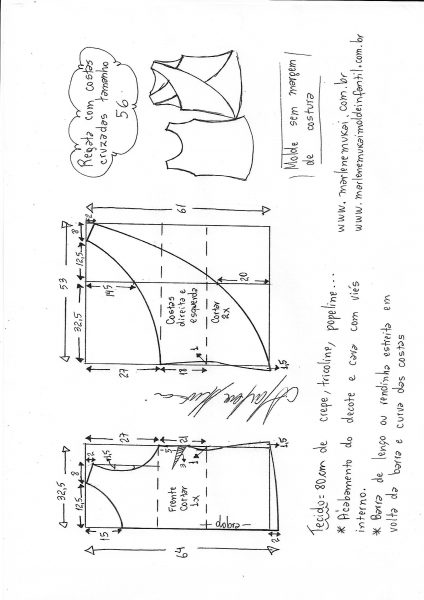 Regata com costas
cruzadas tamanho
56.
Molde sem margem
de costura
www.marlenemukai.com.br
www.marlenemukaimoldeinfantil.com.br
53
32,5
12,5
8
2
61
19,5
27
18
1
20
1,5
Costas
direita e
esquerda
Cortar
2x
32,5
12,5
8
2
27
21
5
3
1
1,5
15
64
2
Frente
Cortar
1x
dobra
Tecido = 80cm de crepe, tricoline, popeline...
* Acabamento do decote e cava com viés
interno.
* Barra de lenço ou rendinha estreita em
volta da barra e curva das costas